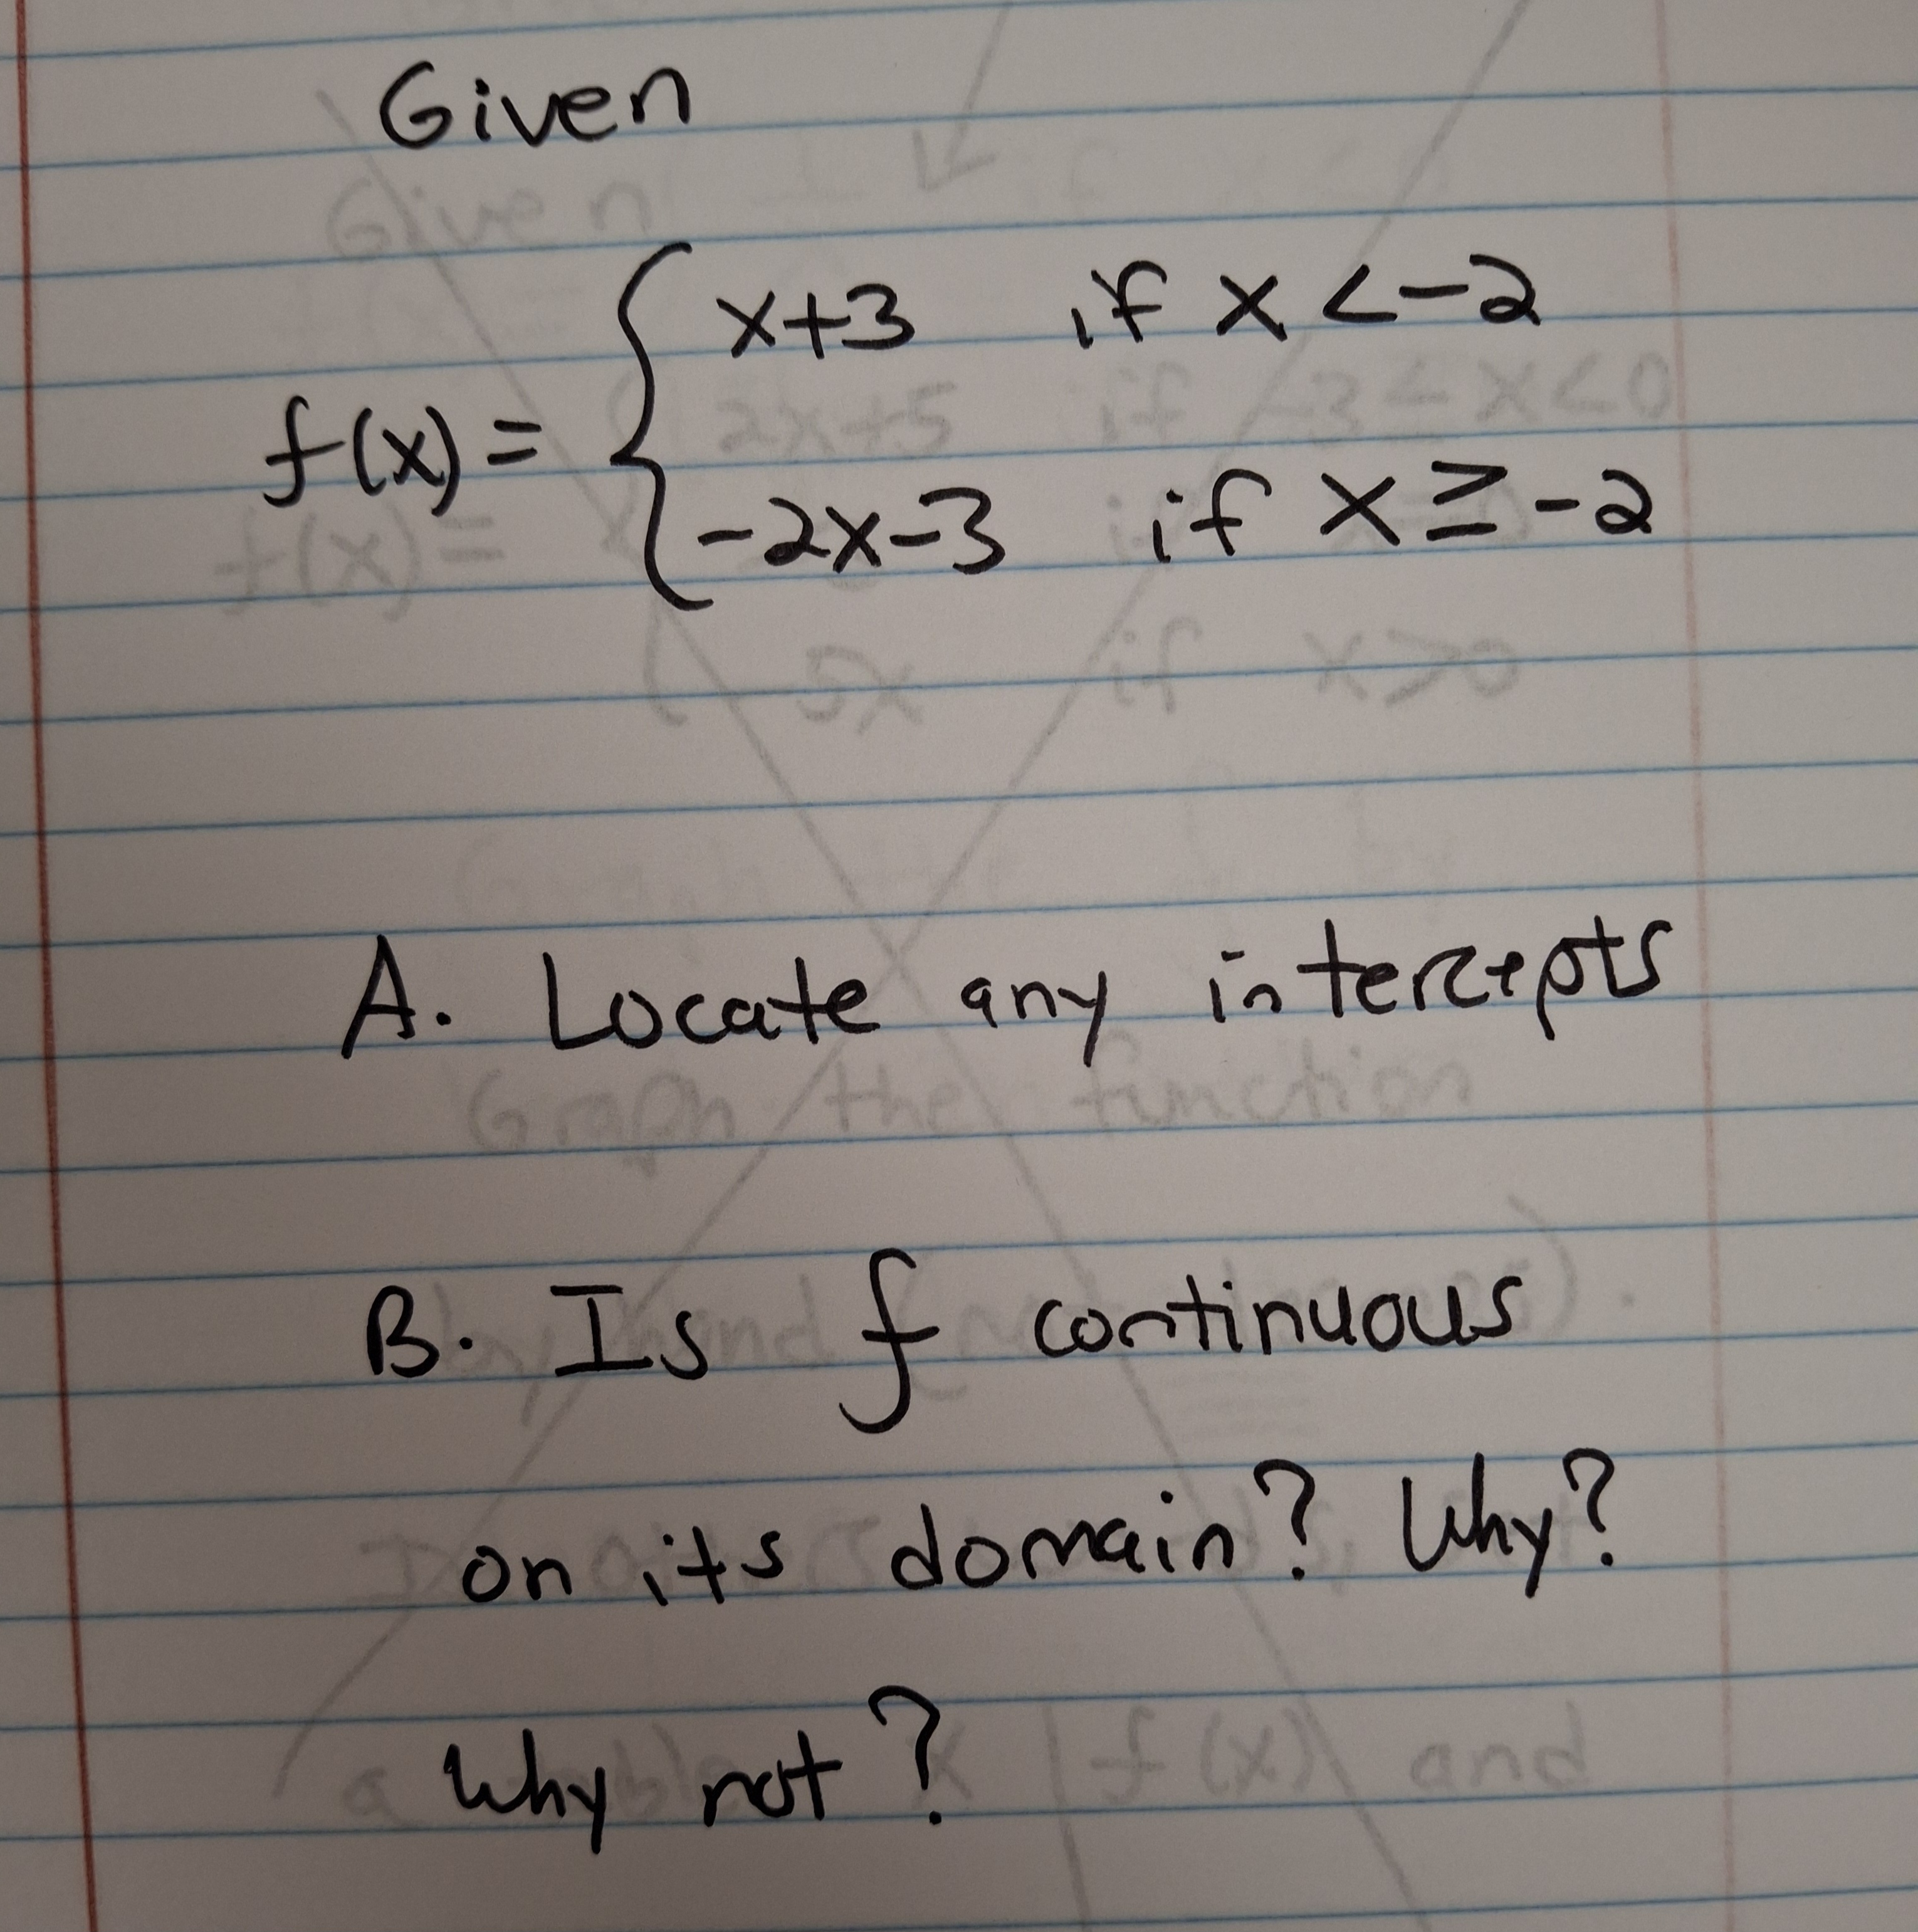 Given
f(x) = { x+3 if x < -2
-2x-3 if x ≥ -2
A. Locate any intercepts
B. Is f continuous
on its domain? Why?
Why not?